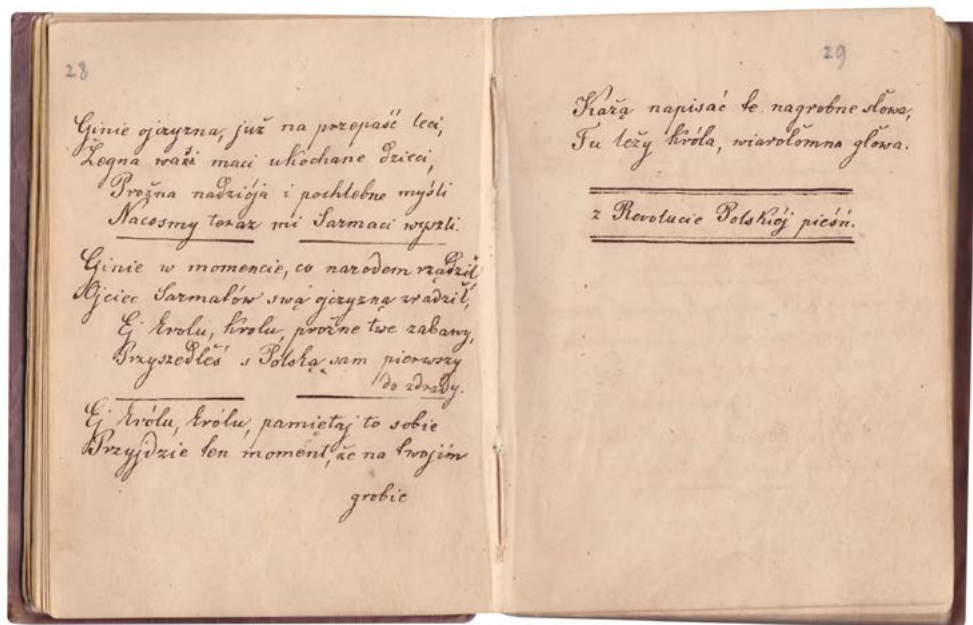 28
Ginie ojczyzna, już na przepaść leci,
Żegna waśż maci ukochane dzieci,
Prożna nadziója i pochlebne myśli
Nacosmy teraz mi Sarmaci wyszli.
Ginie w momencie, co narodem rządził
Ojciec Sarmatów swą ojczyzną zradził,
Ej krolu, krolu, prożne twe zabawy,
Przyszedłeś s Polską, sam pierwszy
do zdrady.
Ej królu, królu, pamiętaj to sobie
Przyjdzie ten moment, że na twojim
grobie
29
Każą napisać te nagrobne słowa,
Tu leży króla, wiarołomna głowa.
z Revolucie Polskiéj pieśń.